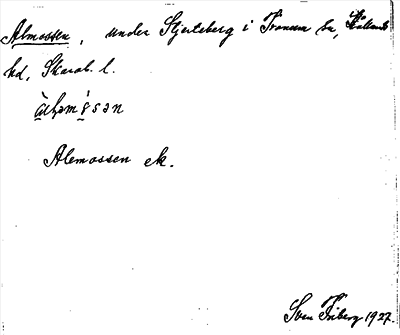 Almossen, under Stjertsberg i Tranum sn, Kållands
hd, Skarab. l.
Alemossen ek.
Sven Friberg 1927.